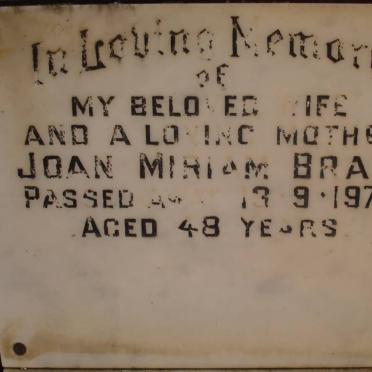 In Loving Memor
of
MY BELOVED WIFE
AND A LOVING MOTHE
JOAN MIRIAM BRA
PASSED AWAY 13 9 197
AGED 48 YEARS